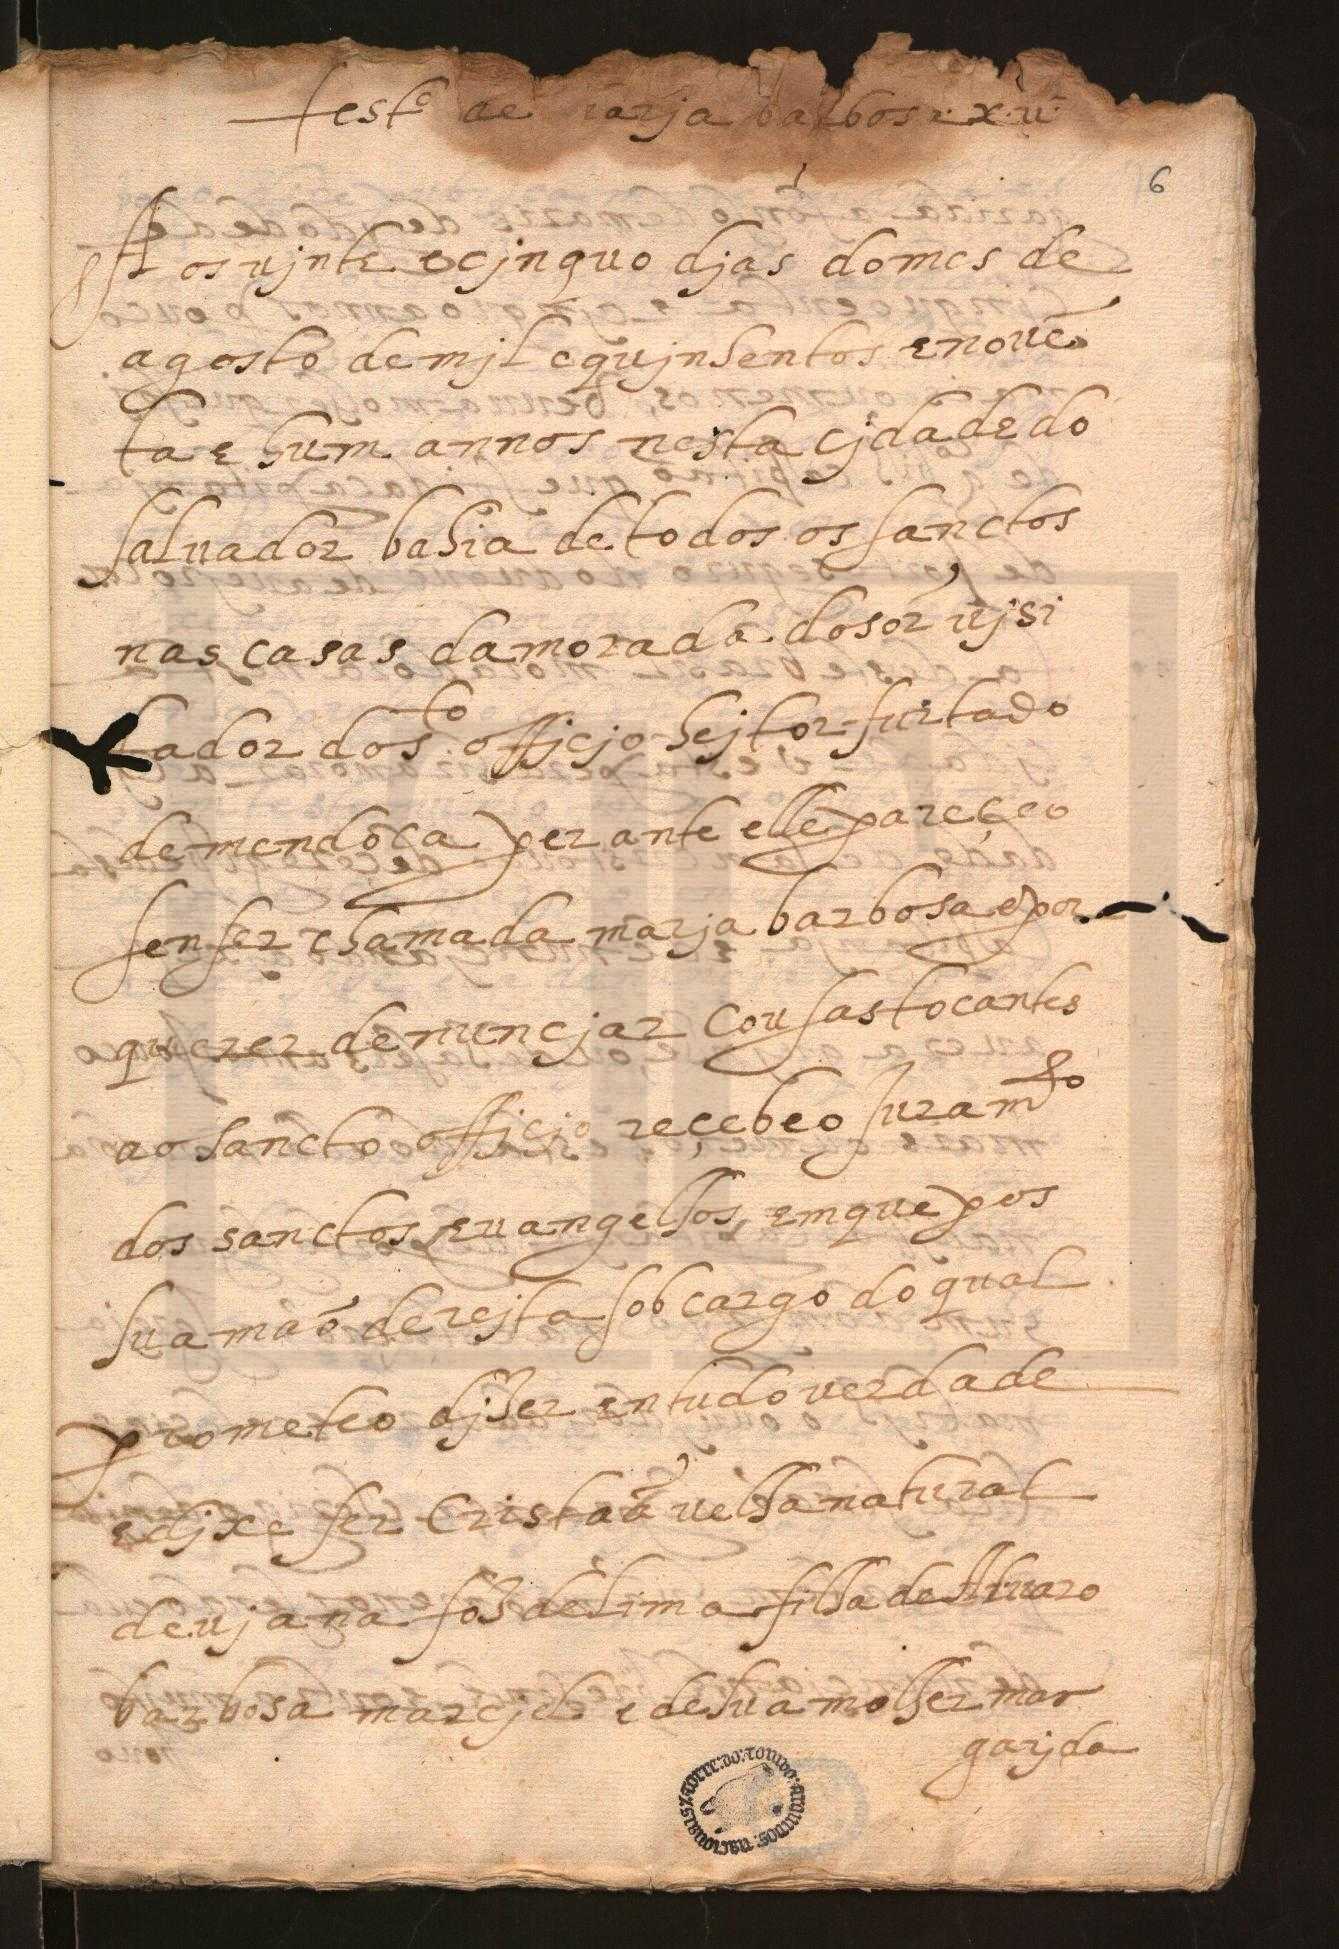 testo de maria barbosa x. v.
6
Aos vjnte e cjnquo djas do mes de
agosto de mjl e qujnhentos e nove
ta e hum annos nesta cjdade do
salvador bahia de todos os sanctos
nas casas da morada do sor vjsi
tador do sto officjo heitor furtado
de mendoça perante elle pareçeo
sen ser chamada marja barbosa e por
querer denuncjar cousas tocantes
ao sancto officjo reçebeo juramto
dos sanctos evangelhos, em que pos
sua mão derejta sob cargo do qual
prometeo djzer en tudo verdade
e djxe ser cristaã velha natural
de vjana foz de lima filha de Alvaro
barbosa e de sua molher mar
garjda
TORRE DO TOMBO